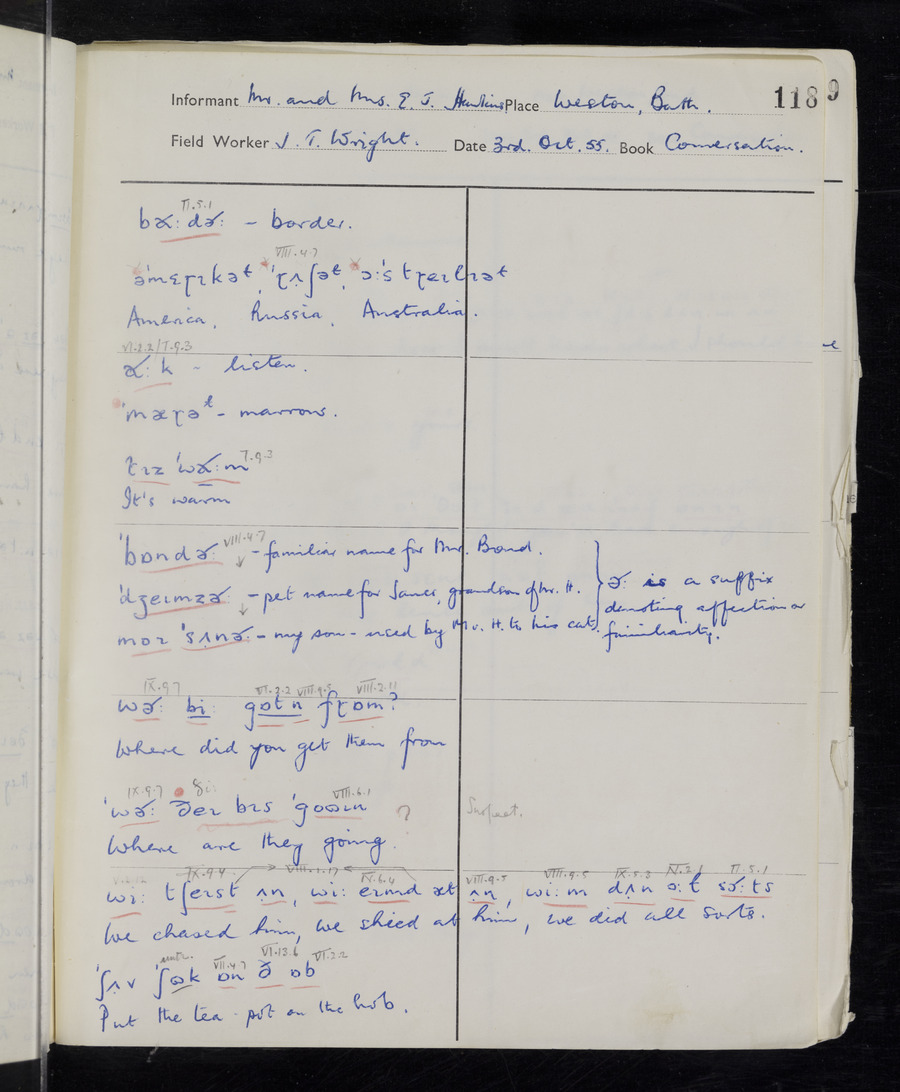 Informant Mr. and Mrs. E. J. Hawkins Place Weston, Bath. 118 9
Field Worker J. T. Wright. Date 3rd. Oct. 55. Book Conversation.
II.5.1
bɑ˞: də˞: – border.
VIII.4.7
ə'mɛɽɪkəɫ, 'ɽʌʃəɫ, ɔ:'stɽeɪlɪəɫ
America, Russia, Australia.
VI.2.2/7.9.3
ɑ˞: k – listen.
'mæɽəɫ – marrow.
tɪz 'wɑ˞:m 7.9.3
It's warm
'bɒndə˞: VIII.4.7 – familiar name for Mr. Bond.
'dʒeɪmzə˞: – pet name for James, grandson of Mr. H.
mɒɪ 'sʌnə˞: – my son – used by Mr. H. to his cat.
ə˞: is a suffix
denoting affection or
familiarity.
IX.9.7 VI.2.2 VIII.9.5 VIII.2.11
wə˞: bi: gɒtn fɽɒm?
Where did you get them from
IX.9.7 ði: VIII.6.1
'wə˞: ðeɪ bɪs 'goʊɪn ? Suspect.
Where are they going.
IX.9.4 VIII.1.17 IV.6.4 VIII.9.5 VIII.9.5 IX.5.3 II.5.1
wi: tʃeɪst ʌn, wi: eɪmd æt ʌn, wi:m dʌn ɔ:ɫ sɔ˞:ts
We chased him, we shied at him, we did all sorts.
VII.4.7 VI.13.6 VI.2.2
'ʃʌv 'ʃɷk ɒn ð ɒb
Put the tea-pot on the hob.